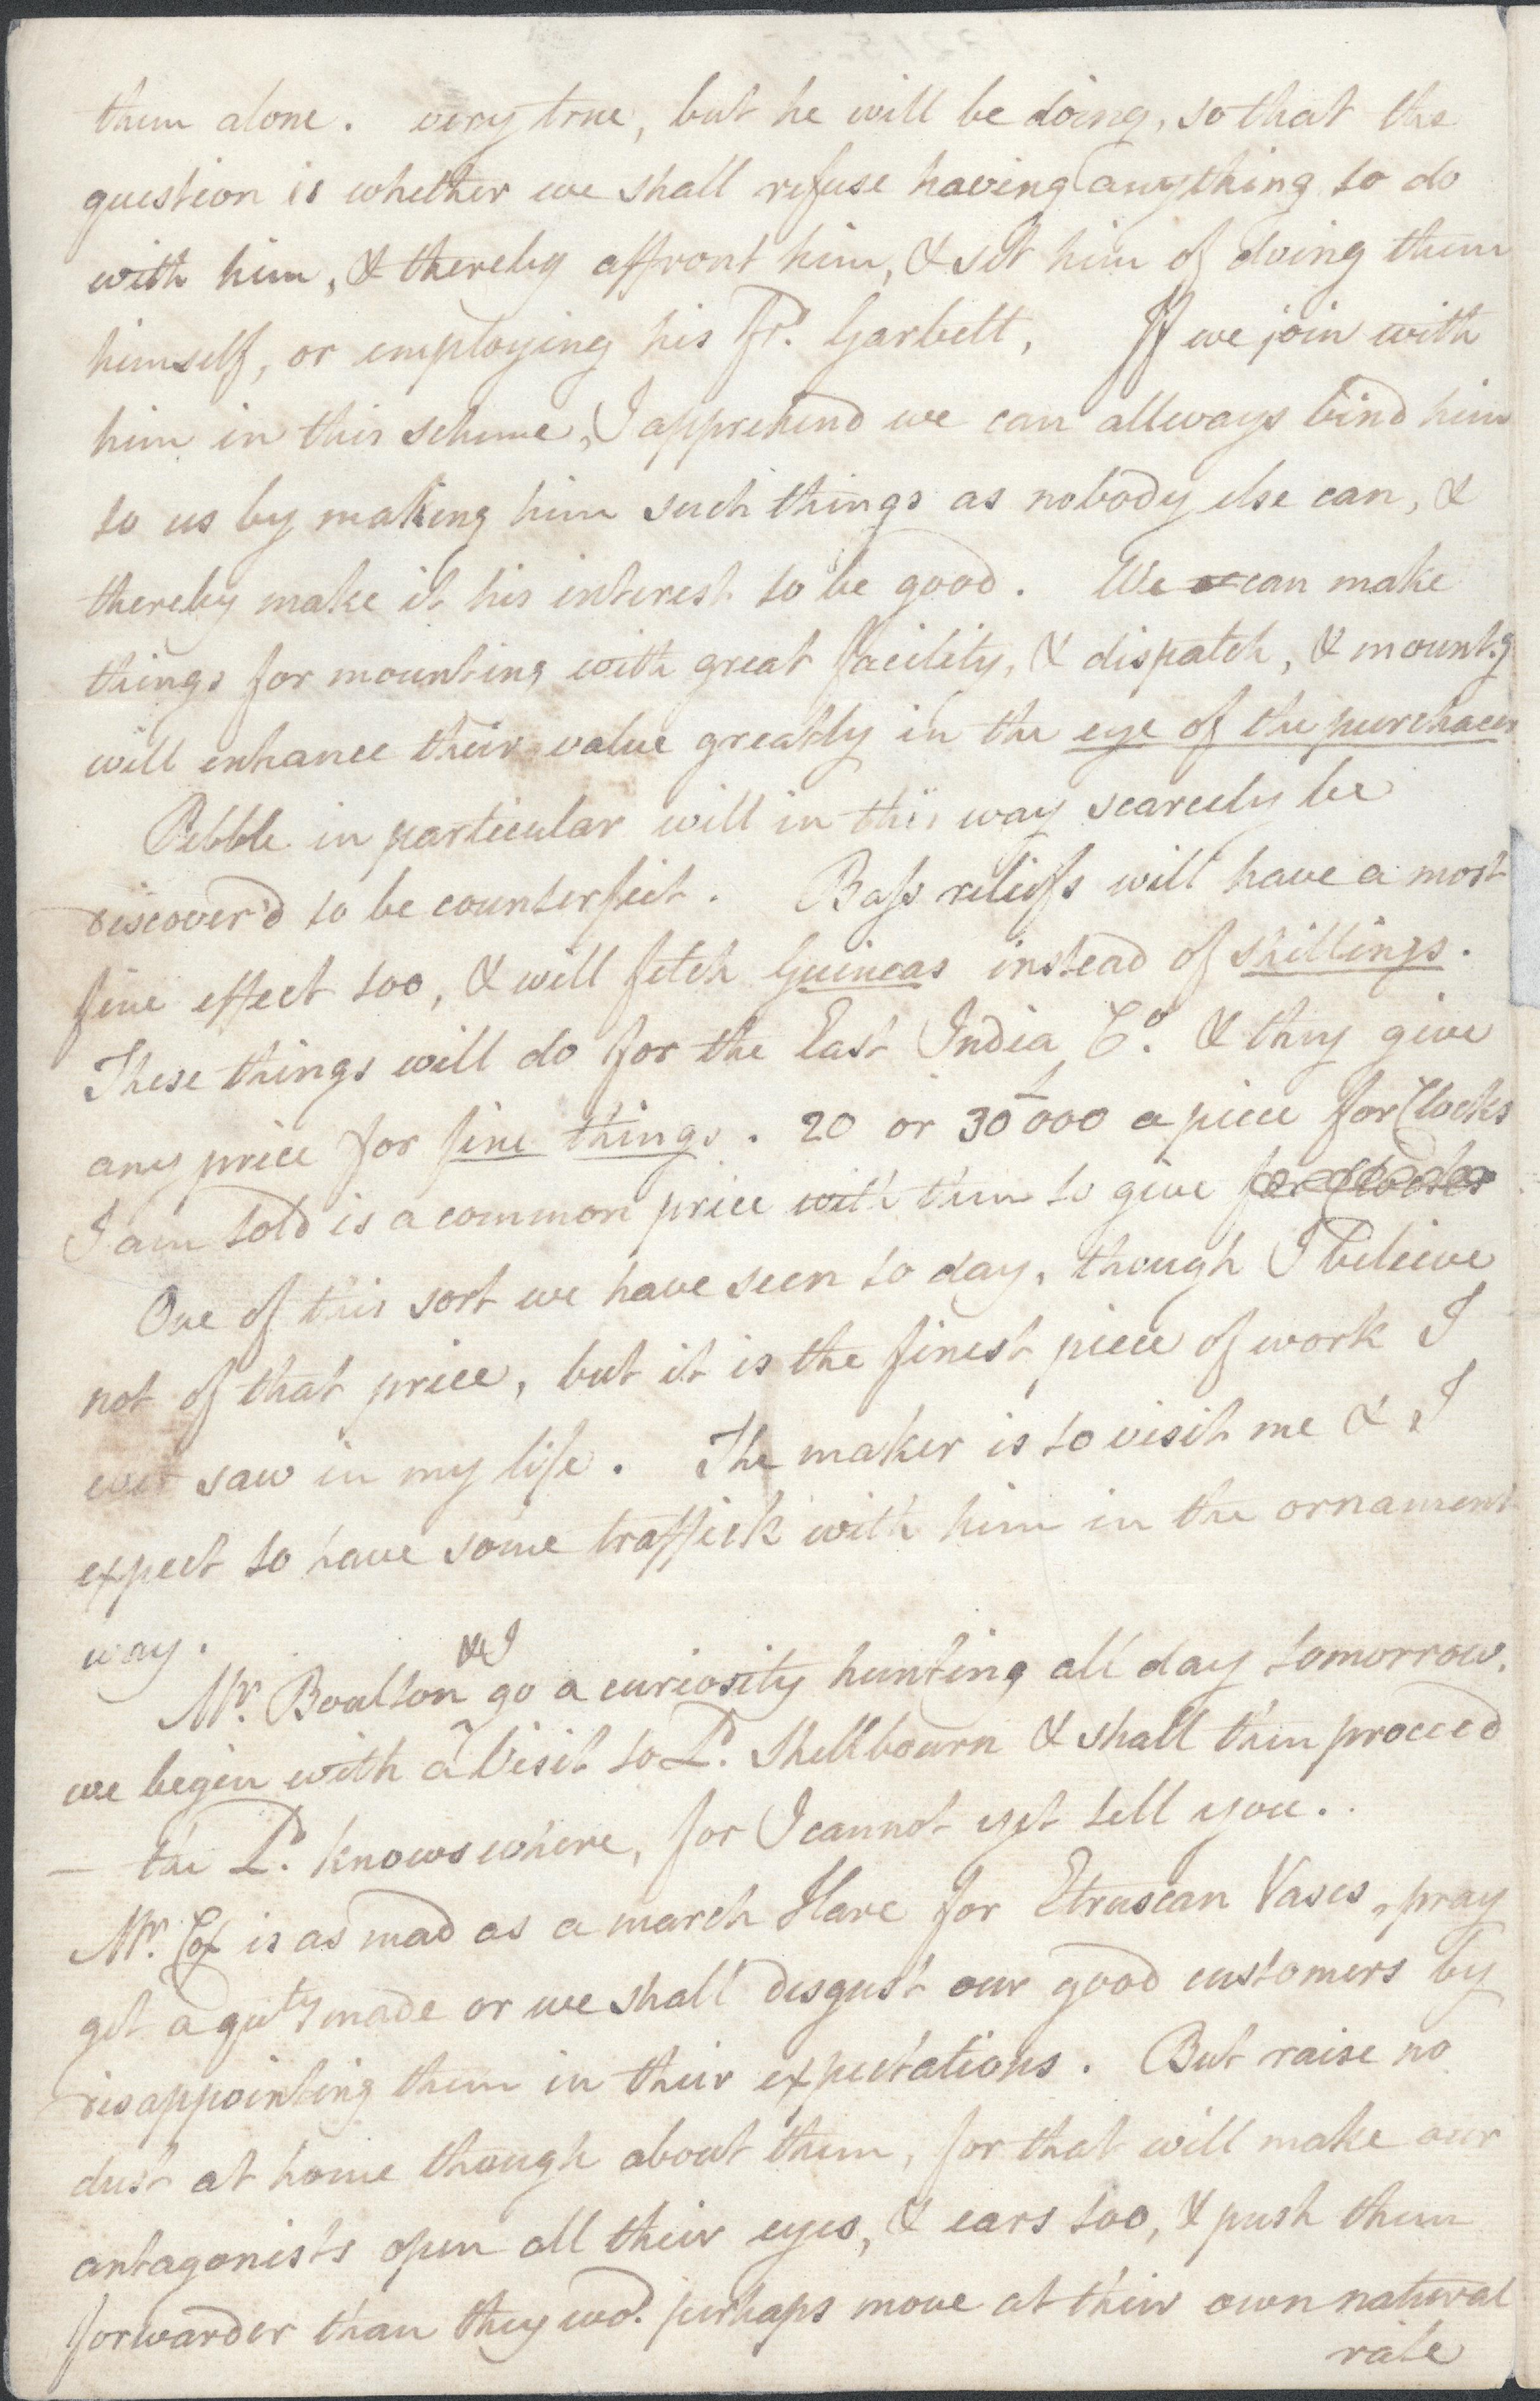 them alone. very true, but he will be doing, so that the
question is whether we shall refuse having anything to do
with him, & thereby affront him, & set him of doing them
himself, or employing his fr.d Garbett, If we join with
him in this scheme, I apprehend we can allways bind him
to us by making him such things as nobody else can, &
thereby make it his interest to be good. We can make
things for mounting with great facility, & dispatch, & mount.g
will enhance their value greatly in the eye of the purchacer
Pebble in particular will in this way scarcely be
discover'd to be counterfeit. Bass reliefs will have a most
fine effect too, & will fetch Guineas instead of shillings.
These things will do for the East India Co. & they give
any price for fine things. 20 or 30£000 a piece for Clocks
I am told is a common price with them to give for Clocks
One of this sort we have seen to day, though I beleive
not of that price, but it is the finest piece of work I
ever saw in my life. The maker is to visit me & I
expect to have some traffick with him in the ornament
way.
Mr. Boulton & I go a curiosity hunting all day tomorrow.
we begin with a Visit to Ld. Shellbourn & shall then proceed
— the Ld. knows where, for I cannot yet tell you.
Mr. Cox is as mad as a march Hare for Etruscan Vases, pray
get a quty made or we shall disgust our good customers by
disappointing them in their expectations. But raise no
dust at home though about them, for that will make our
antagonists open all their eyes, & ears too, & push them
forwarder than they wod. perhaps move at their own natural
rate